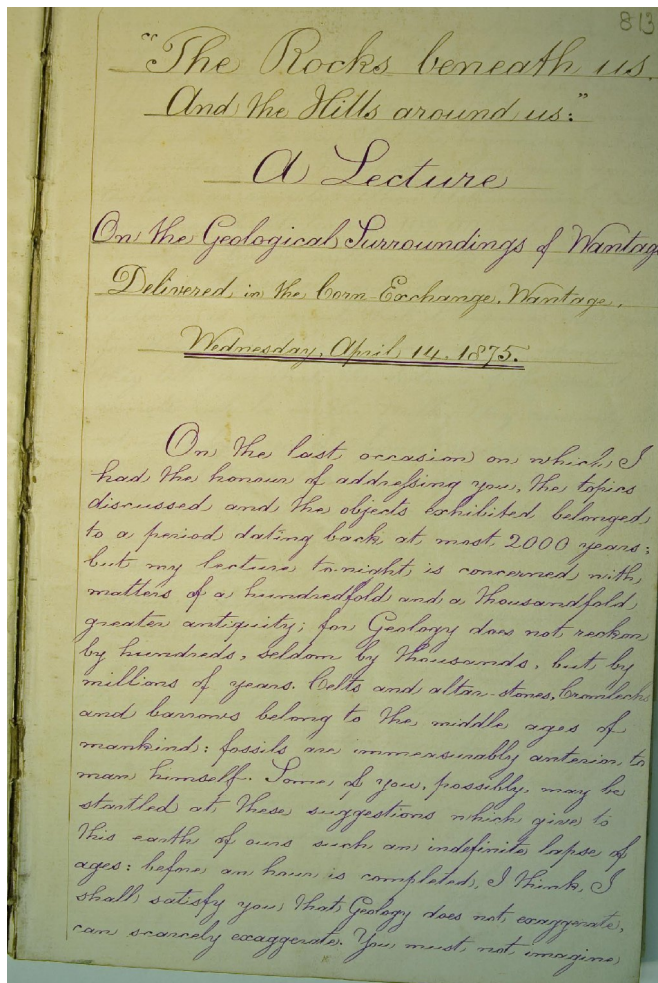 813
"The Rocks beneath us.
And the Hills around us:"
A Lecture
On the Geological Surroundings of Wantage
Delivered in the Corn Exchange, Wantage,
Wednesday, April 14. 1875.
On the last occasion on which I
had the honour of addressing you, the topics
discussed and the objects exhibited belonged
to a period dating back at most 2000 years;
but my lecture to-night is concerned with
matters of a hundredfold and a thousandfold
greater antiquity; for Geology does not reckon
by hundreds, seldom by thousands, but by
millions of years. Celts and altar-stones, Cromlechs
and barrows belong to the middle ages of
mankind: fossils are immeasurably anterior to
man himself. Some of you, possibly, may be
startled at these suggestions which give to
this earth of ours such an indefinite lapse of
ages: before an hour is completed, I think, I
shall satisfy you that Geology does not exaggerate,
can scarcely exaggerate. You must not imagine